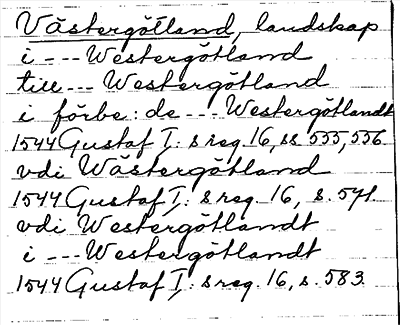 Västergötland, landskap
i --- Westergötland
till --- Westergötland
i förbe: de --- Westergötlandt
1544 Gustaf I: s reg. 16, ss 555, 556
vdi Wästergötland
1544 Gustaf I: s reg. 16, s. 571.
vdi Westergötlandt
i --- Westergötlandt
1544 Gustaf I: s reg. 16, s. 583.